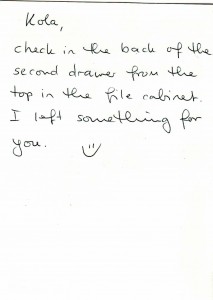 Kola,
check in the back of the
second drawer from the
top in the file cabinet.
I left something for
you.